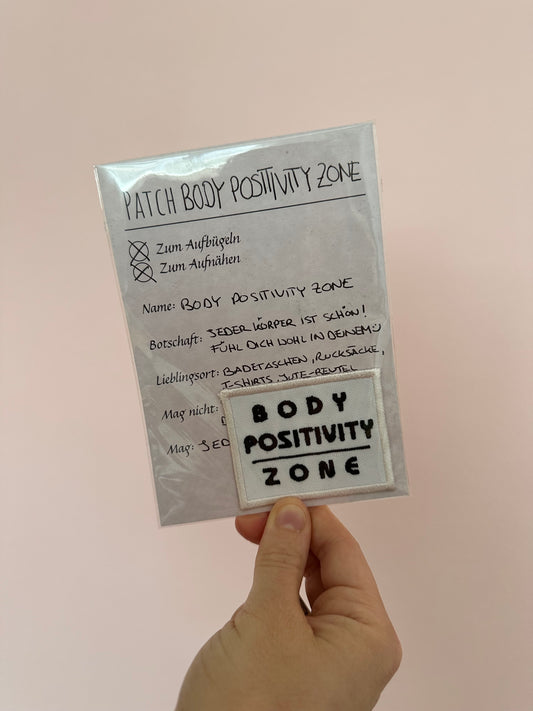 PATCH BODY POSITIVITY ZONE
Zum Aufbügeln
Zum Aufnähen
Name: BODY POSITIVITY ZONE
Botschaft: JEDER KÖRPER IST SCHÖN!
FÜHL DICH WOHL IN DEINEM :)
Lieblingsort: BADETASCHEN, RUCKSÄCKE,
T-SHIRTS, JUTE-BEUTEL
Mag nicht:
Mag: JED
BODY
POSITIVITY
ZONE